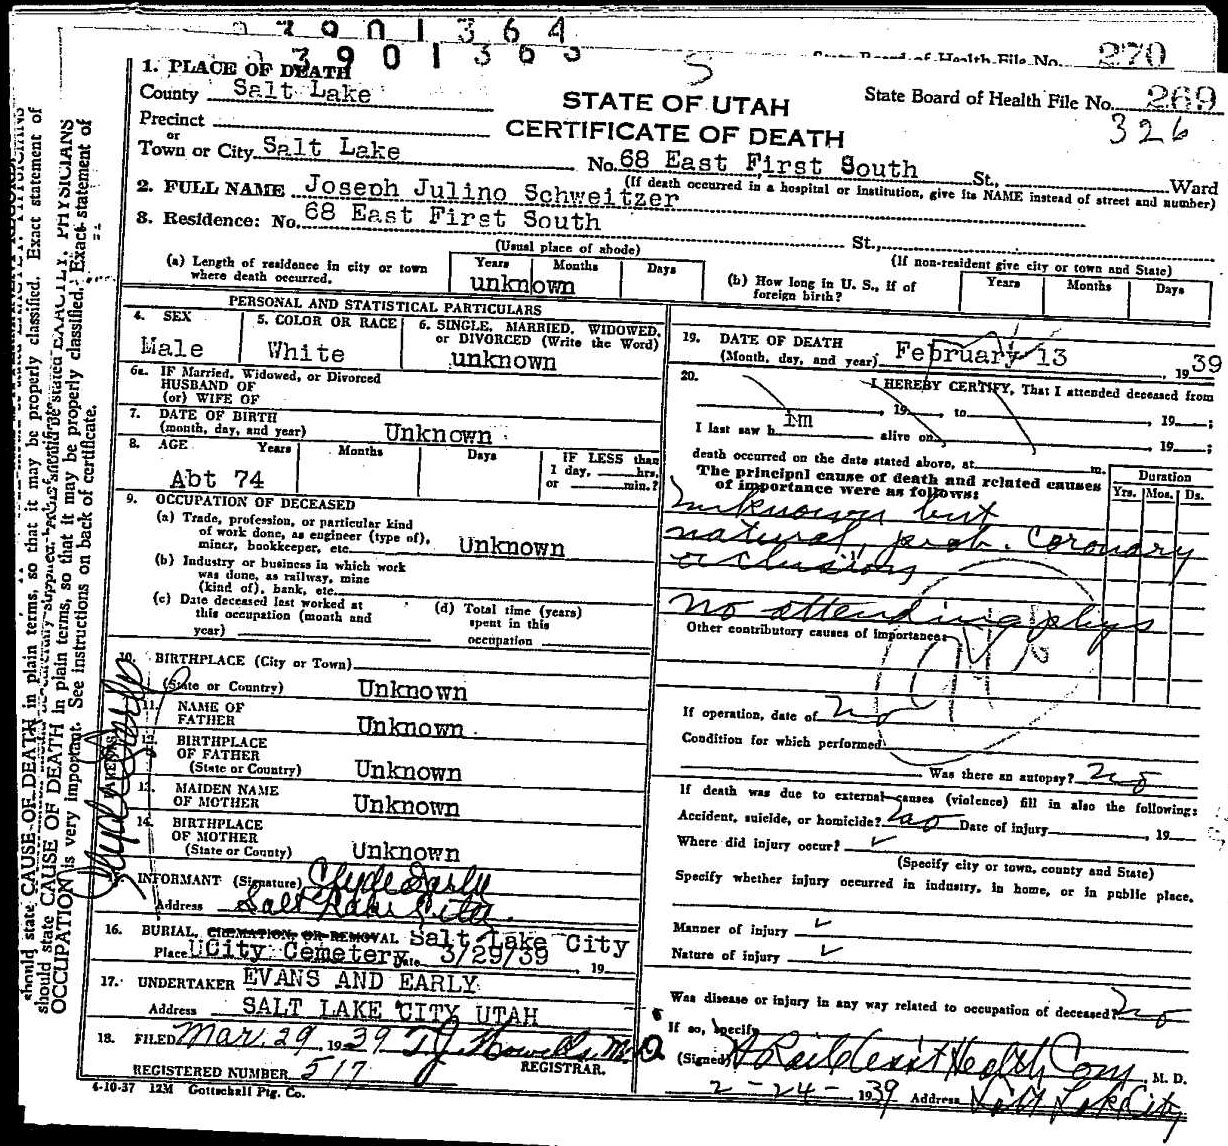 3901364
3901365
State Board of Health File No. 270
1. PLACE OF DEATH
County Salt Lake
STATE OF UTAH
CERTIFICATE OF DEATH
State Board of Health File No. 269
326
Precinct
or
Town or City Salt Lake No. 68 East First South St., Ward
(If death occurred in a hospital or institution, give its NAME instead of street and number)
2. FULL NAME Joseph Julino Schweitzer
3. Residence: No. 68 East First South St.,
(Usual place of abode)
(If non-resident give city or town and State)
(a) Length of residence in city or town where death occurred. Years Months Days
unknown
(b) How long in U. S., if of foreign birth? Years Months Days
PERSONAL AND STATISTICAL PARTICULARS
4. SEX
Male
5. COLOR OR RACE
White
6. SINGLE, MARRIED, WIDOWED, or DIVORCED (Write the Word)
unknown
6a. IF Married, Widowed, or Divorced
HUSBAND OF
(or) WIFE OF
7. DATE OF BIRTH
(month, day, and year) Unknown
8. AGE Years Months Days IF LESS than
1 day, hrs.
or min.?
Abt 74
9. OCCUPATION OF DECEASED
(a) Trade, profession, or particular kind
of work done, as engineer (type of),
miner, bookkeeper, etc. Unknown
(b) Industry or business in which work
was done, as railway, mine
(kind of), bank, etc.
(c) Date deceased last worked at
this occupation (month and
year)
(d) Total time (years)
spent in this
occupation
10. BIRTHPLACE (City or Town)
(State or Country) Unknown
11. NAME OF
FATHER Unknown
12. BIRTHPLACE
OF FATHER
(State or Country) Unknown
13. MAIDEN NAME
OF MOTHER Unknown
14. BIRTHPLACE
OF MOTHER
(State or Country) Unknown
INFORMANT (Signature) Clyde Early
Address Salt Lake City
16. BURIAL, CREMATION, OR REMOVAL Salt Lake City
Place City Cemetery Date 3/29/39, 19
17. UNDERTAKER EVANS AND EARLY
Address SALT LAKE CITY UTAH
18. FILED Mar. 29 1939 T J Howells M.D.
REGISTRAR.
REGISTERED NUMBER 517
4-10-37 12M Gottschall Ptg. Co.
19. DATE OF DEATH
(Month, day, and year) February 13, 1939
20. I HEREBY CERTIFY, That I attended deceased from
, 19, to , 19;
I last saw him alive on , 19;
death occurred on the date stated above, at m.
The principal cause of death and related causes
of importance were as follows:
Duration
Yrs. Mos. Ds.
unknown but
natural, prob. coronary
occlusion
no attending phys
Other contributory causes of importance:
If operation, date of no
Condition for which performed
Was there an autopsy? no
If death was due to external causes (violence) fill in also the following:
Accident, suicide, or homicide? no Date of injury , 19
Where did injury occur?
(Specify city or town, county and State)
Specify whether injury occurred in industry, in home, or in public place.
Manner of injury
Nature of injury
Was disease or injury in any way related to occupation of deceased? no
If so, specify
(Signed) Health Com M. D.
2-24-1939 Address Salt Lake City
should state CAUSE OF DEATH in plain terms, so that it may be properly classified. Exact statement of
should state CAUSE OF DEATH in plain terms, so that it may be properly classified. Exact statement of
OCCUPATION is very important. See instructions on back of certificate.
Clyde Early